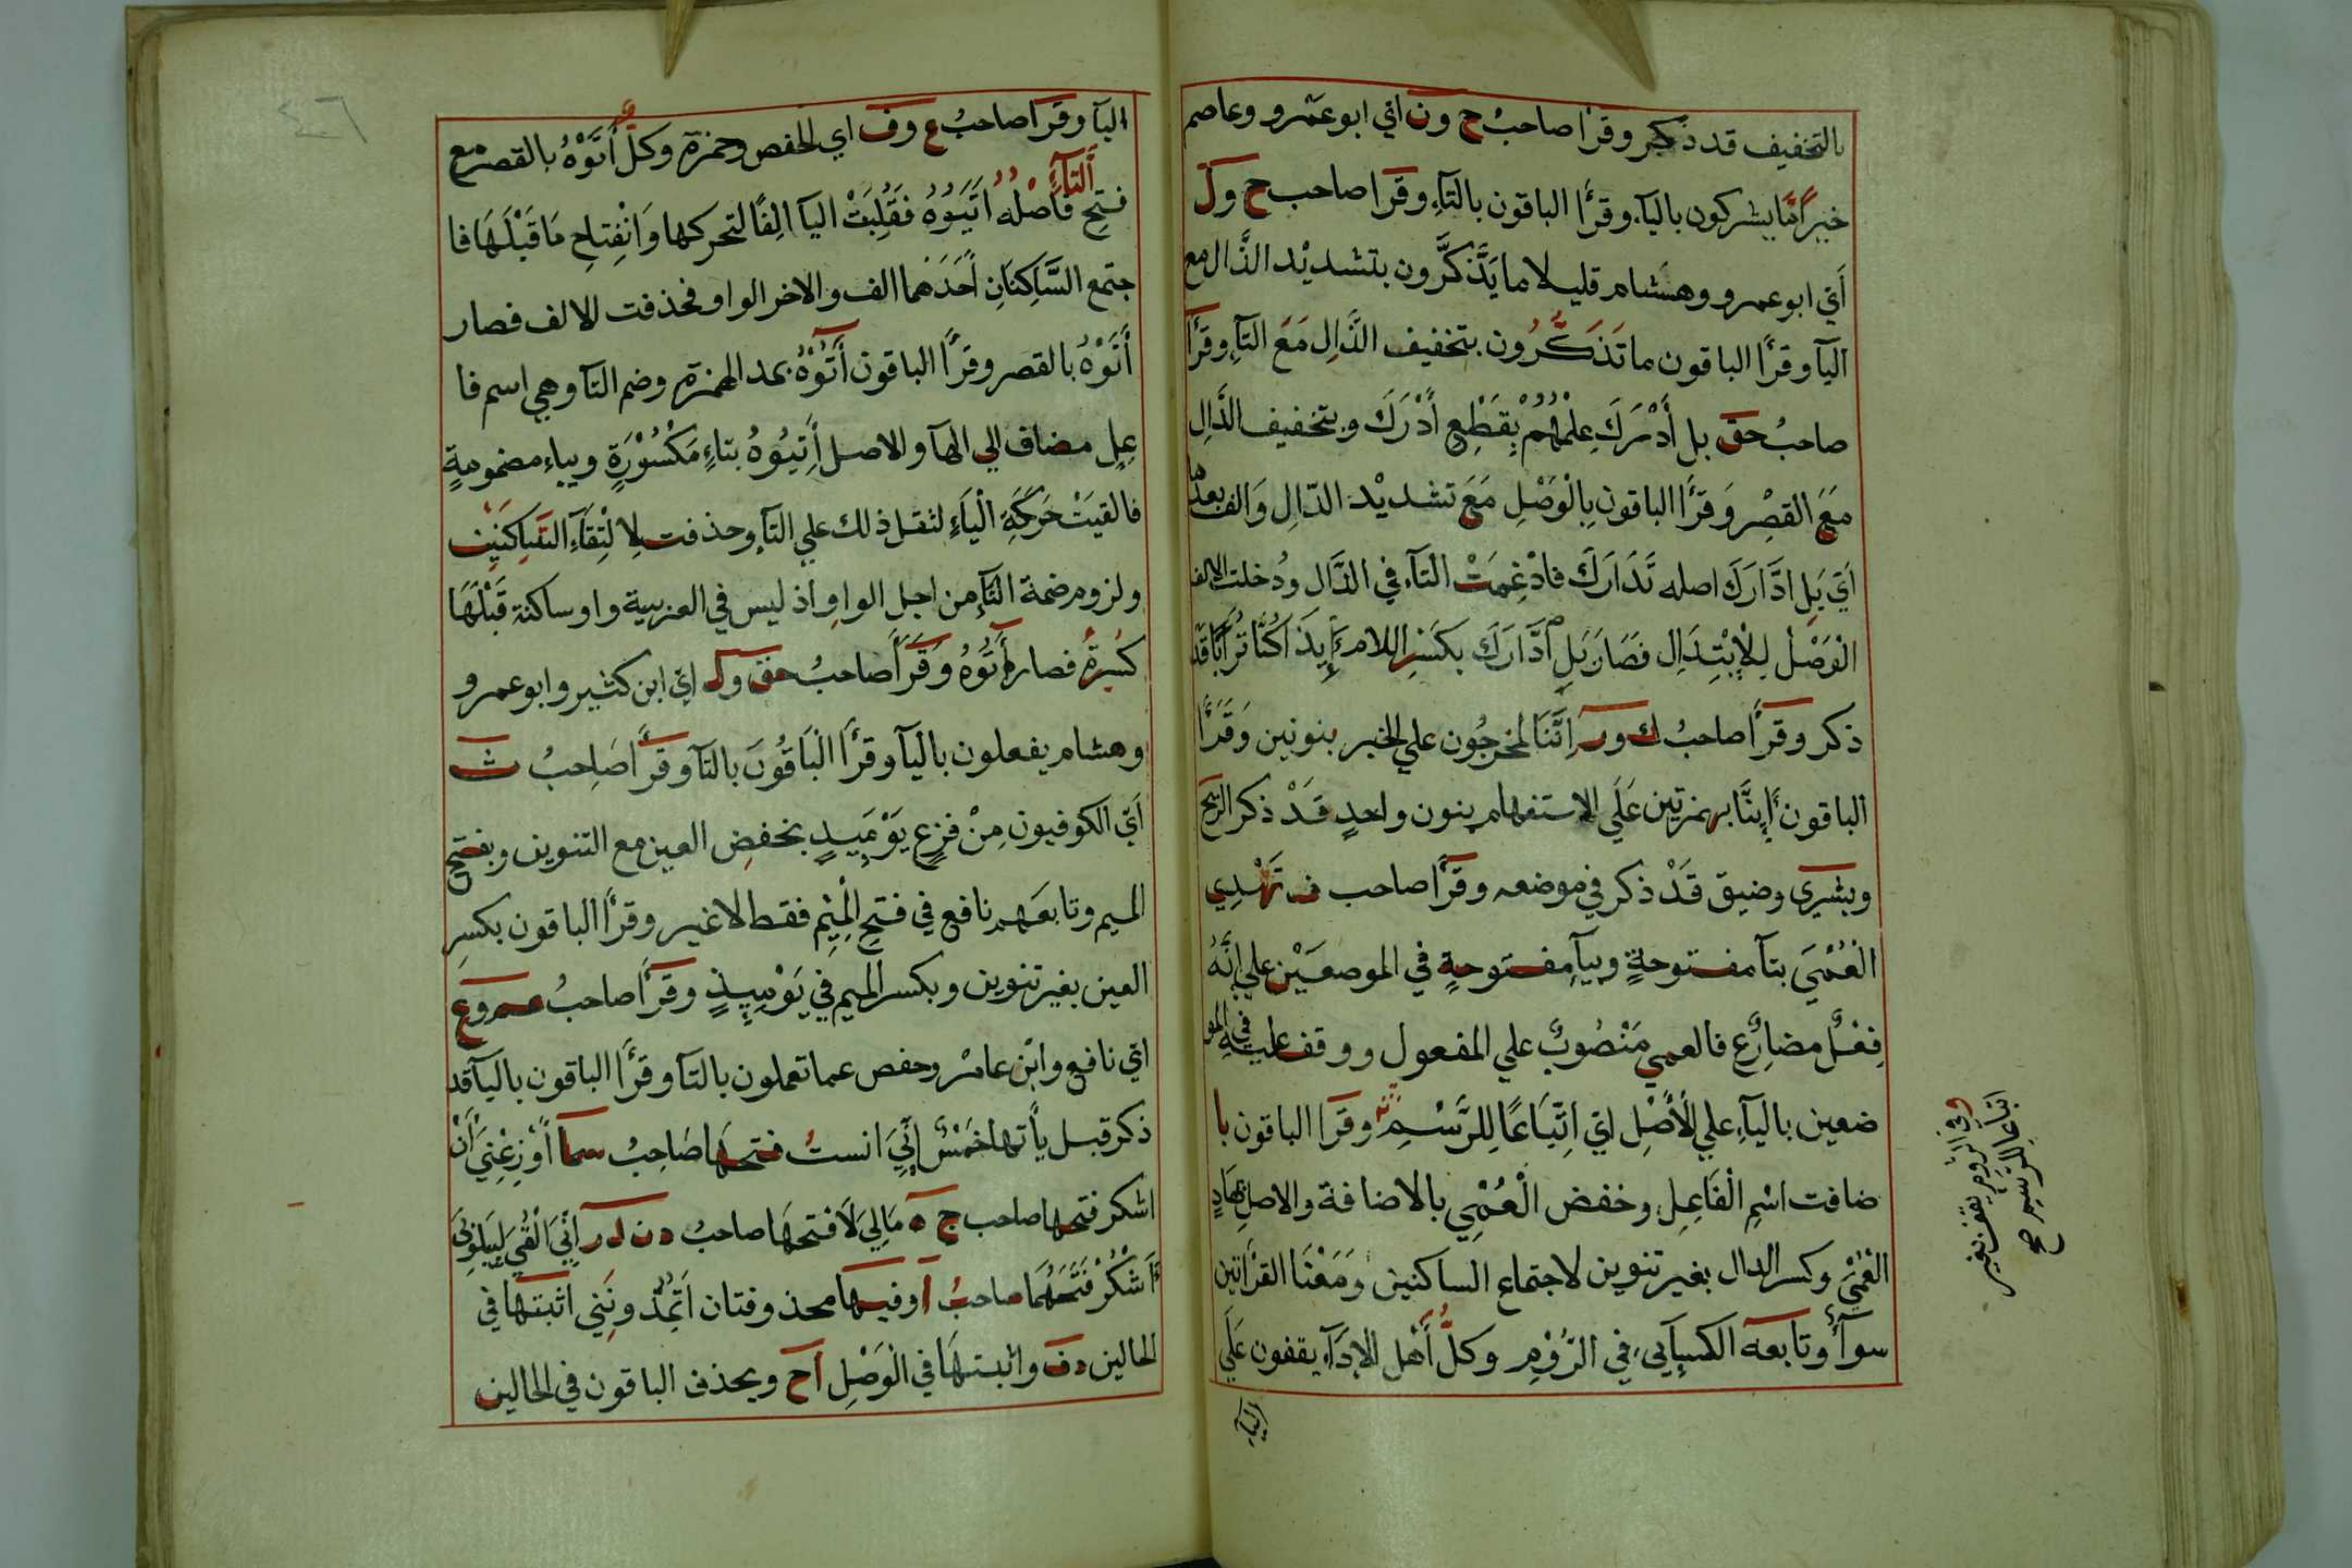 بالتخفيف قد ذكر وقرا صاحبُ ح ون اي ابو عمرو وعاصم
خيرٌ امّا يشركون بالياء وقرأ الباقون بالتاءِ وقرا صاحب ح ول
أي ابو عمرو وهشام قليلا ما يَذَّكَّرون بتشديْد الذَّال مع
اليآ وقرأ الباقون ما تَذَكَّرُون بتخفيف الذَّالِ مَعَ التآءِ وقرأ
صاحبُ حق بل أَدْرَكَ عِلْمُهُمْ بِقَطْعِ أَدْرَكَ وبتخفيف الدَّالِ
مَعَ القصْرِ وَقَرأ الباقون بِالْوَصْلِ مَعَ تشديْد الدّالِ وَالف بعدها
اَيْ بَلِ ادَّارَكَ اصله تَدَارَكَ فادْغِمَتْ التآء في الدَّال ودُخلت الالف
الْوَصْلُ لِلْإبْتِدَالِ فصَارَ بَلِ ادَّارَكَ بكَسْرِ اللام ءَإِيذَا كُنَّا تُرابًا قد
ذكر وقرأ صاحبُ ك ور اِنَّنَا لمخرجُون علي الخبر بنونين وَقَرَأ
الباقون أَإِنَّا بهمزتين عَلَي الاستفهام بنون واحدٍ قَدْ ذكر الريح
وبشرى وضيق قَدْ ذكر في موضعه وقرأ صاحب ف تَهْدِي
الْعُمْيَ بتآ مفتوحةٍ وبيآءٍ مفتوحةٍ في الموضعَيْن علي اِنَّهُ
فِعْلٌ مضارِعٌ فالعمي مَنْصُوبٌ علي المفعول ووقف عليه في المو
ضعين باليآءِ علي الأَصْلِ ايْ اِتِّبَاعًا لِلرَّسْمِ وقرَا الباقون با
ضافت اسْمِ الْفَاعِلِ وخفض الْعُمْيِ بالاضافة والاصل بهادٍ
الْعُمْيِ وكسر الدال بغير تنوين لاجتماع الساكنين ومَعْنَا القرأتين
سوآءٌ وتابعه الكسائي في الرُّوْمِ وكلُّ أَهل الادآء يقفون عَلَي
اليآء
وفي الروم يقف بغير
اتباعا للرسم صح
٤٦
اليآ وقرَا صاحبُ ع وف اي الحفص وحمزة وكلٌّ أَتَوْهُ بالقصر مع
فتح التآء فأَصْلُه اَتَيَوُهُ فقُلِبَتْ اليآ الِفًا لتحركها وَانْفِتاحِ مَا قَبْلَهَا فا
جتمع السَّاكِنَانِ أَحَدَهُما الف والاخر الواو فحذفت الالف فصار
أَتَوْهُ بالقصر وقرأ الباقون آَتُوْهُ بمد الهمزة وضم التآ وهي اسم فا
عِلٍ مضاف الي الهآ والاصل أَتِيُوْهُ بتاءٍ مَكْسُوْرَةٍ وبياءٍ مضمومةٍ
فالقيَتْ حَرَكَةَ الْيَاءِ لثقل ذلك علي التآءِ وحذفت لِالْتِقَاءِ السَّاكنَيْن
ولزوم ضمة التآءِ من اجل الواو اذ ليس في العربية واو ساكنة قَبْلَهَا
كَسْرةٌ فصار آَتُوْهُ وَقَرَأَ صاحبُ حق ول اي ابن كثير وابو عمرو
وهشام يفعلون باليآ وقرأ الْبَاقُونَ بالتآ وقرأ صَاحِبُ ث
اَيْ الكوفيون مِنْ فزعٍ يَوْمَيِذٍ بخفضِ العين مع التنوين وبفتح
الميم وتابعَهم نافع في فتح الْمِيْمِ فقط لا غير وقرأ الباقون بكسرِ
العين بغير تنوين وبكسر الميم في يَوْمِيِذٍ وقرأ صاحبُ عم وع
ايْ نافع وابْن عامر وحفص عما تعملون بالتآ وقرأ الباقون باليآ قد
ذكر قبل يأتها خمْسٌ إِنِّيَ انستُ فتحها صَاحِبُ سما اَوْزِعْنِيَ أَنْ
اشكر فتحها صاحب ج ه مَالِيَ لَا فتحهَا صاحبُ د ن ل ر إِنِّيَ أُلْقِيَ لِيَبْلُوَنِيَ
ءَاَشْكُرْ فَتَحَهُمَا صاحبُ أ وفيها محذوفتان اَتُمِدُّونَنِي اثبتها في
الحالين د ف واثبتهَا في الْوَصْلِ ا ح ويحذف الباقون في الحالين